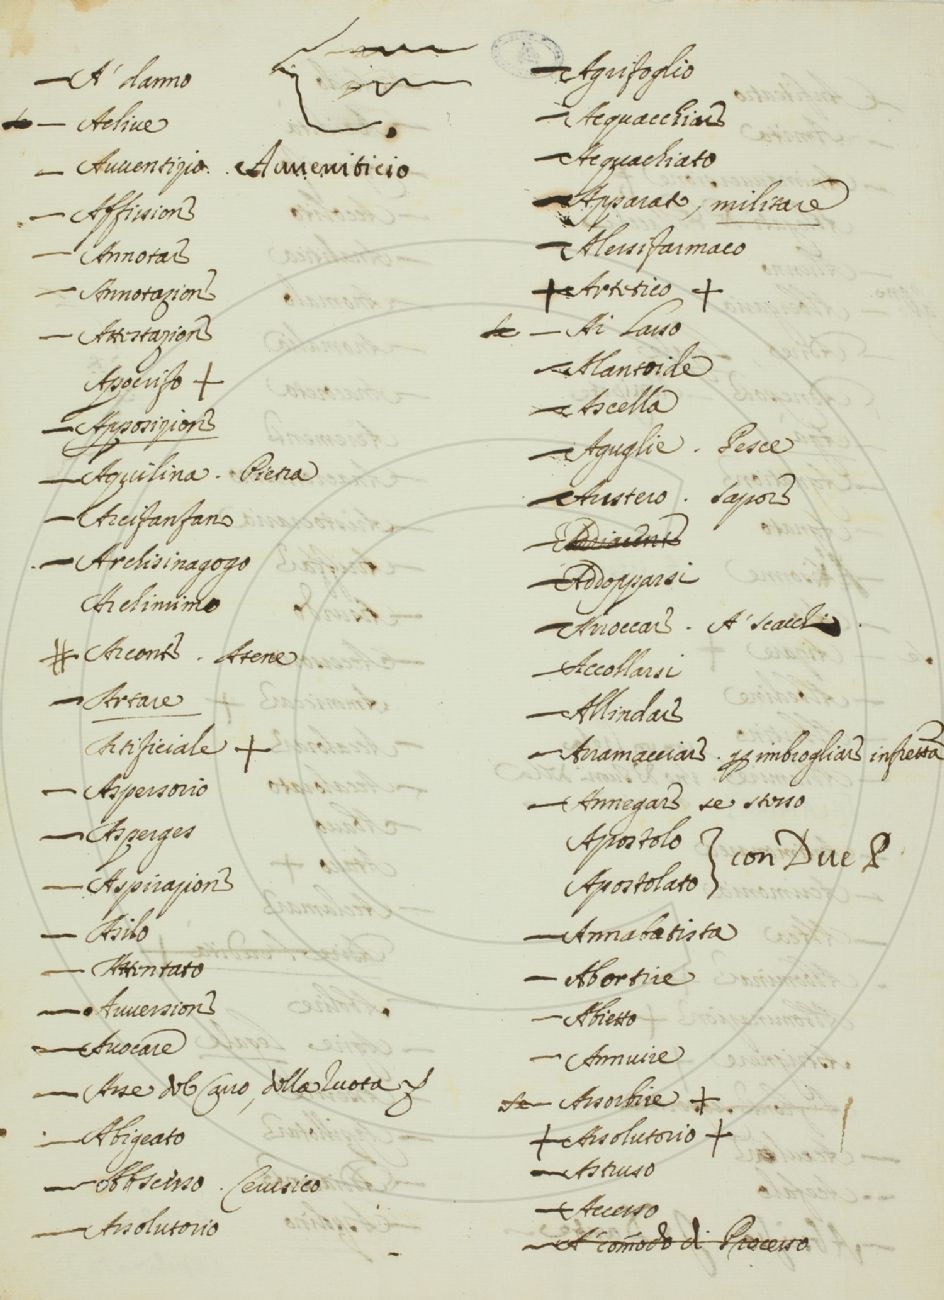 A' danno
Aclive
Avventizio. Avveniticio
Affusione
Annotare
Annotazione
Attestazione
Apocrifo +
Apposizione
Aquilina. Pietra
Arcifanfano
Archisinagogo
Archimimo
Arconte. Atene
Artare
Artificiale +
Aspersorio
Asperges
Aspirazione
Asilo
Attentato
Avversione
Avocare
Asse del Carro, della Ruota
Abigeato
Absolutorio
Agrifoglio
Acquacchiare
Acquachiato
Apparato, militare
Alessifarmaco
+ Artetico +
Ai lasso
Alantoide
Ascella
Aguglie. Pesce
Austero. sapore
Addopparsi
Arroccare. A' scacchi.
Accollarsi
Allindare
Arramacciare. imbrogliare infretta
Annegare se stesso
Apostolo
Apostolato } con Due P
Annabatista
Abortire
Abietto
Annuire
Assorbire +
+ Assolutorio +
Astruso
Accesso
A' comodo di Processo